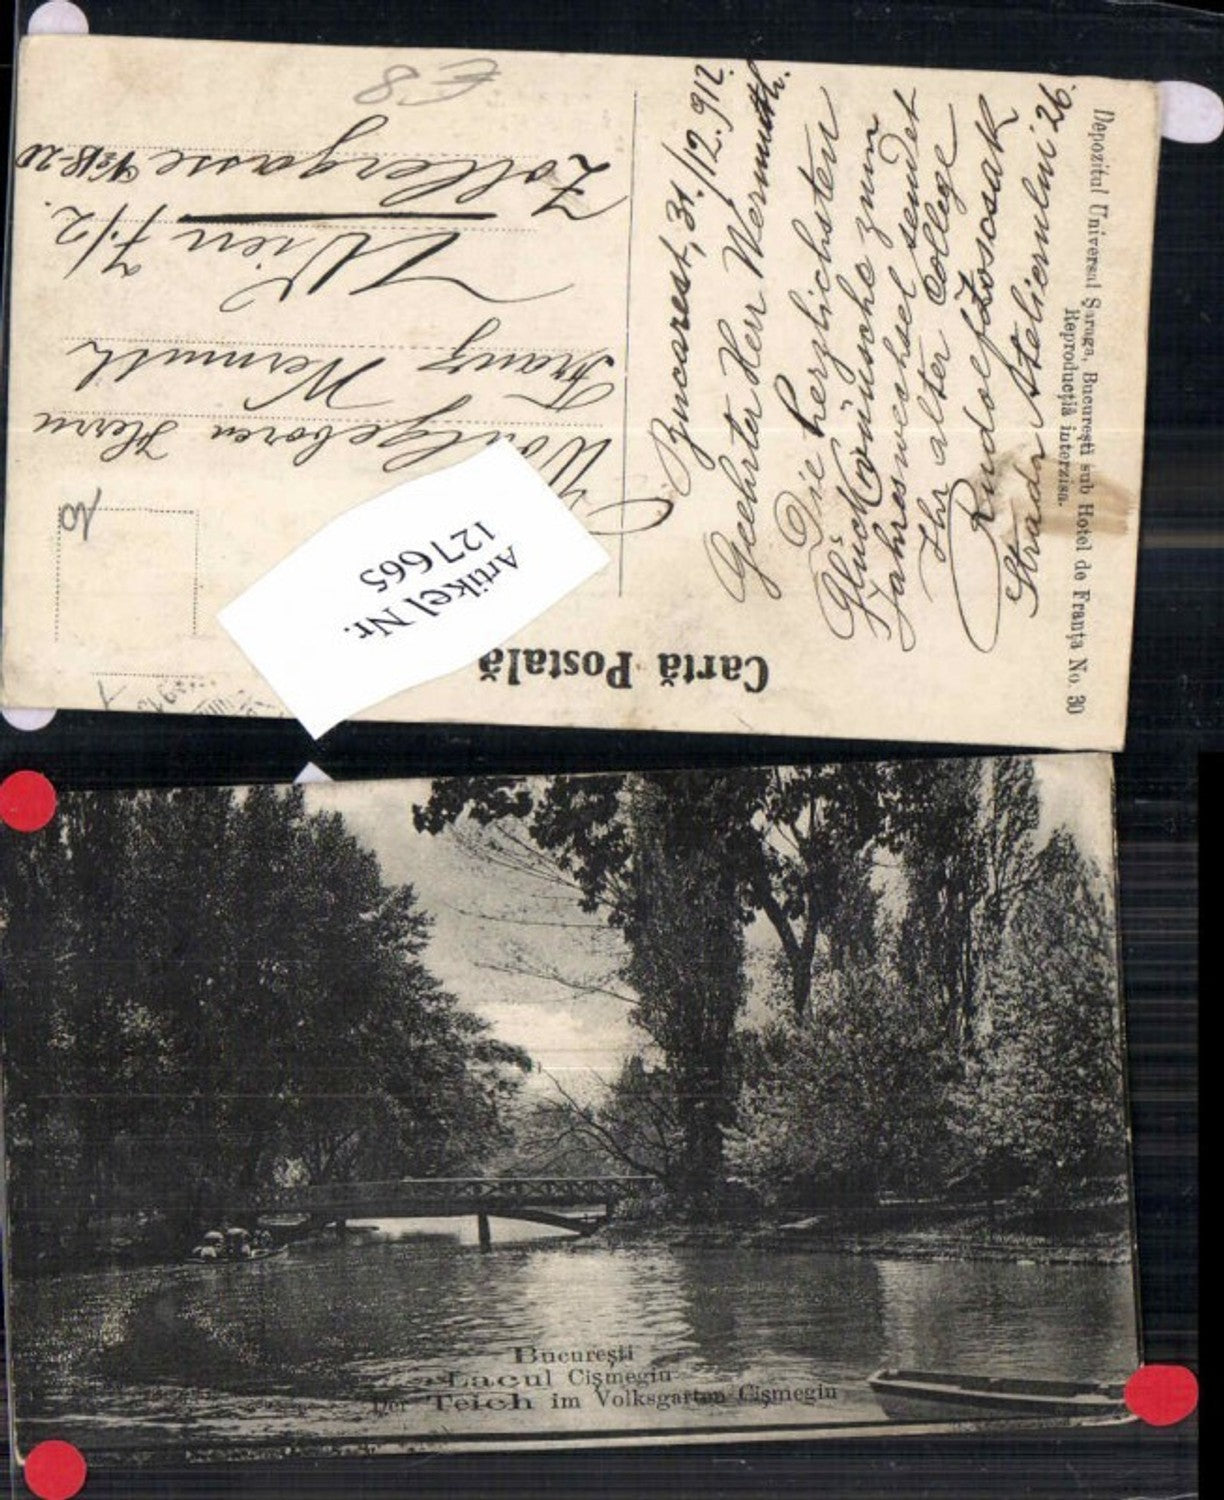 Cartă Postală
Depozitul Universul Șaraga, București sub Hotel de Franța No. 30
Reproducția interzisa.
Bucarest, 31./12. 912.
Geehrter Herr Wermuth.
Die herzlichsten
Glückwünsche zum
Jahreswechsel sendet
Ihr alter College
Rudolf Zoscsak
Strada Atelierului 26.
Wohlgeboren Herrn
Franz Wermuth
Wien 7/2.
Zollergasse 18-20
€8
Artikel Nr.
127665
București
Lacul Cișmegiu
Der Teich im Volksgarten Cișmegiu